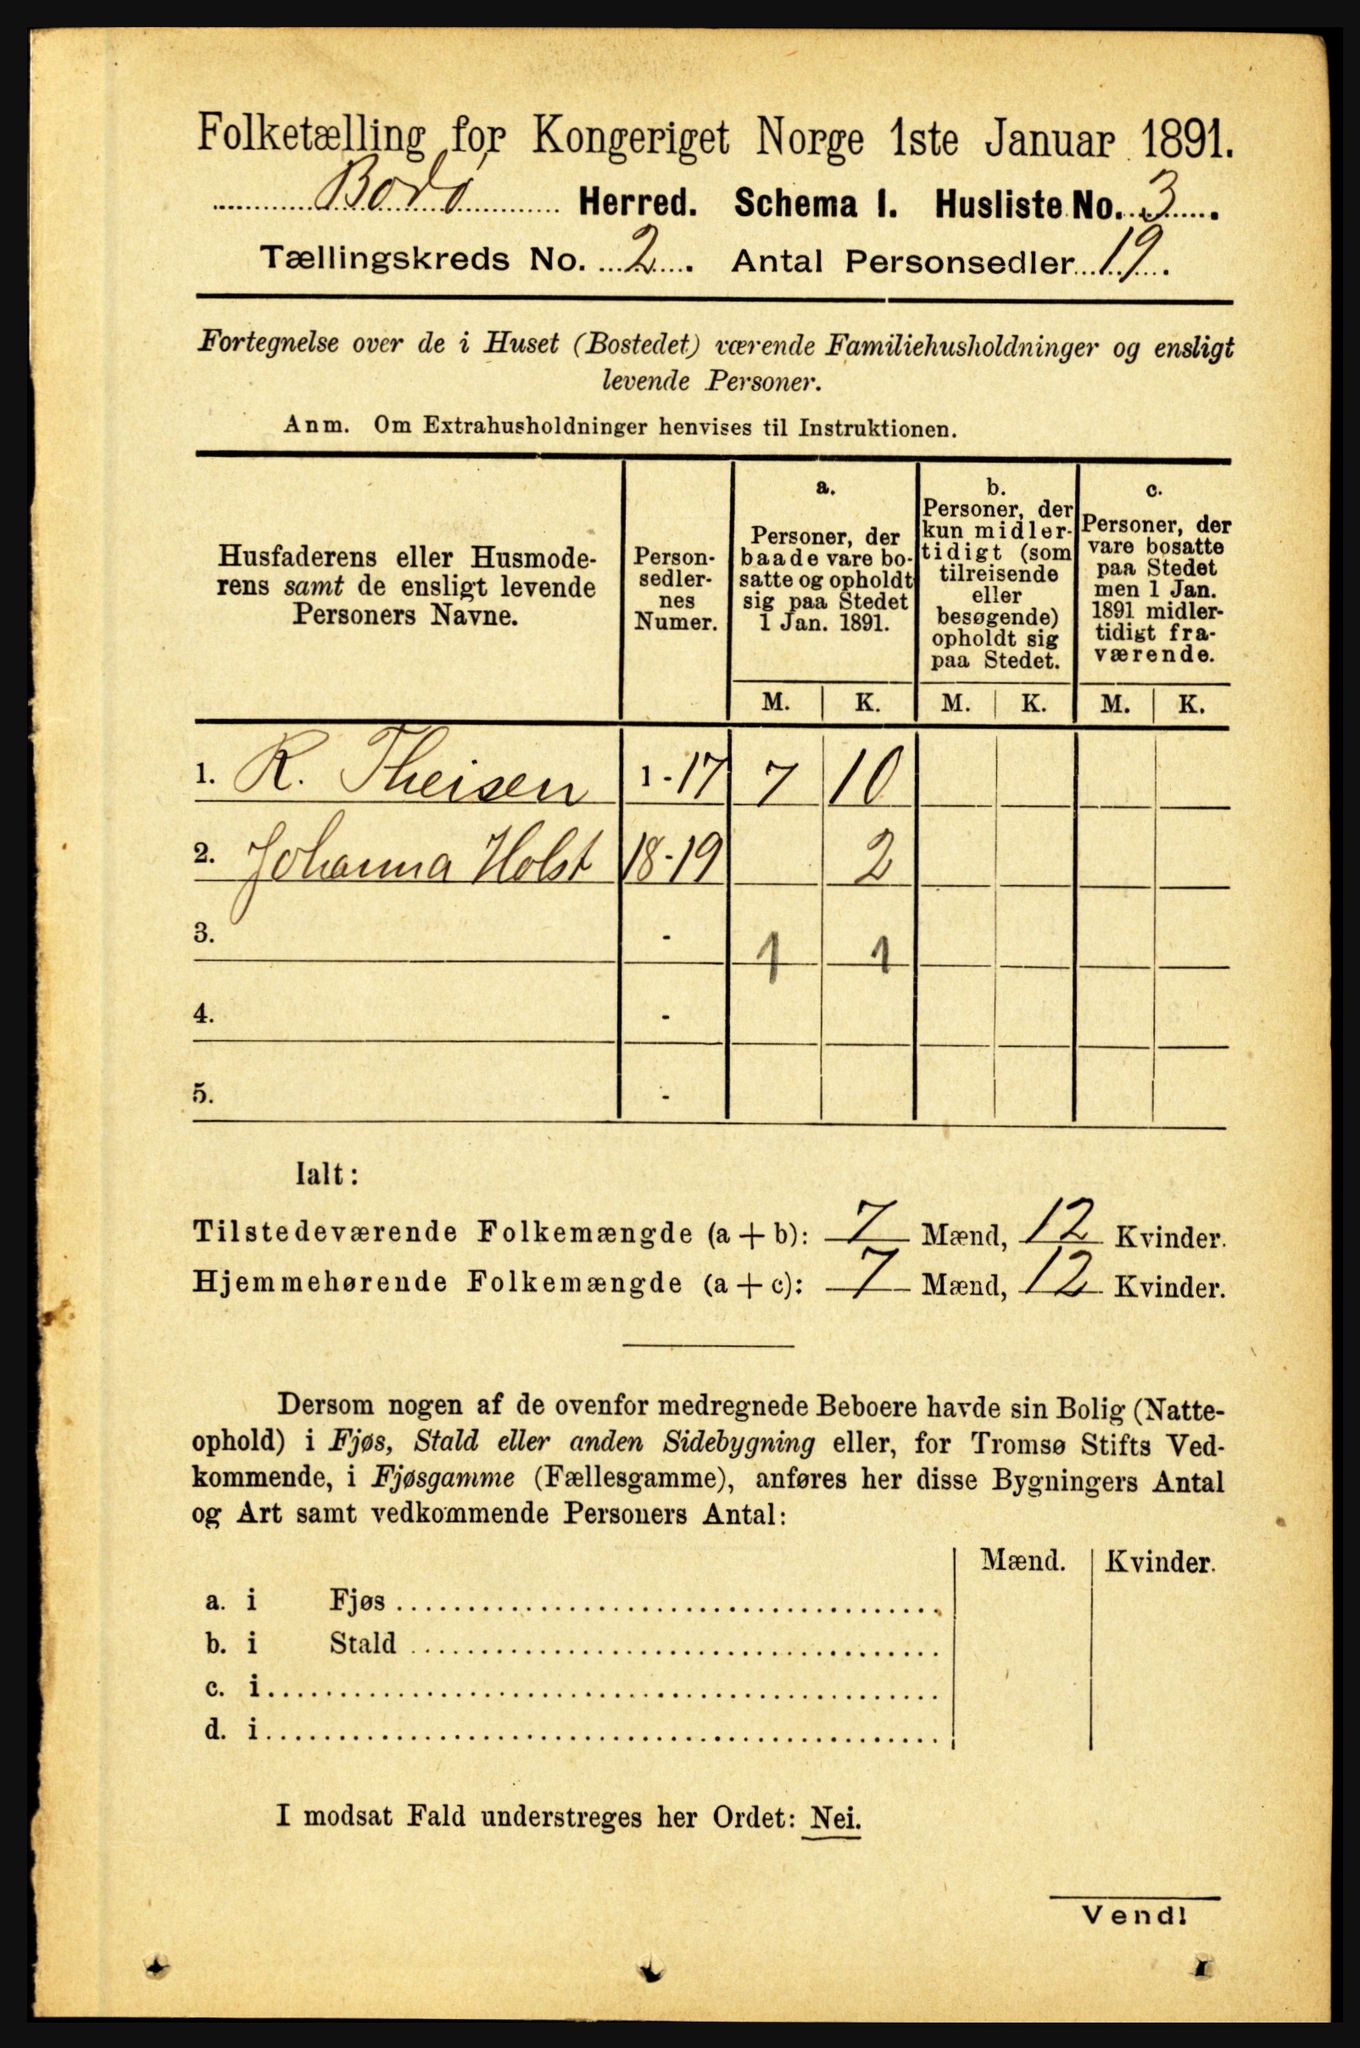 Folketælling for Kongeriget Norge 1ste Januar 1891.
Bodø Herred. Schema I. Husliste No. 3.
Tællingskreds No. 2. Antal Personsedler 19.
Fortegnelse over de i Huset (Bostedet) værende Familiehusholdninger og ensligt
levende Personer.
Anm. Om Extrahusholdninger henvises til Instruktionen.
Husfaderens eller Husmode-
rens samt de ensligt levende
Personers Navne.
Person-
sedler-
nes
Numer.
a.
Personer, der
baade vare bo-
satte og opholdt
sig paa Stedet
1 Jan. 1891.
b.
Personer, der
kun midler-
tidigt (som
tilreisende
eller
besøgende)
opholdt sig
paa Stedet.
c.
Personer, der
vare bosatte
paa Stedet
men 1 Jan.
1891 midler-
tidigt fra-
værende.
M. K. M. K. M. K.
1. R. Theisen 1-17 7 10
2. Johanna Holst 18-19 2
3. - 1 1
4. -
5. -
Ialt:
Tilstedeværende Folkemængde (a+b): 7 Mænd, 12 Kvinder.
Hjemmehørende Folkemængde (a+c): 7 Mænd, 12 Kvinder.
Dersom nogen af de ovenfor medregnede Beboere havde sin Bolig (Natte-
ophold) i Fjøs, Stald eller anden Sidebygning eller, for Tromsø Stifts Ved-
kommende, i Fjøsgamme (Fællesgamme), anføres her disse Bygningers Antal
og Art samt vedkommende Personers Antal:
Mænd. Kvinder.
a. i Fjøs
b. i Stald
c. i
d. i
I modsat Fald understreges her Ordet: Nei.
Vend!